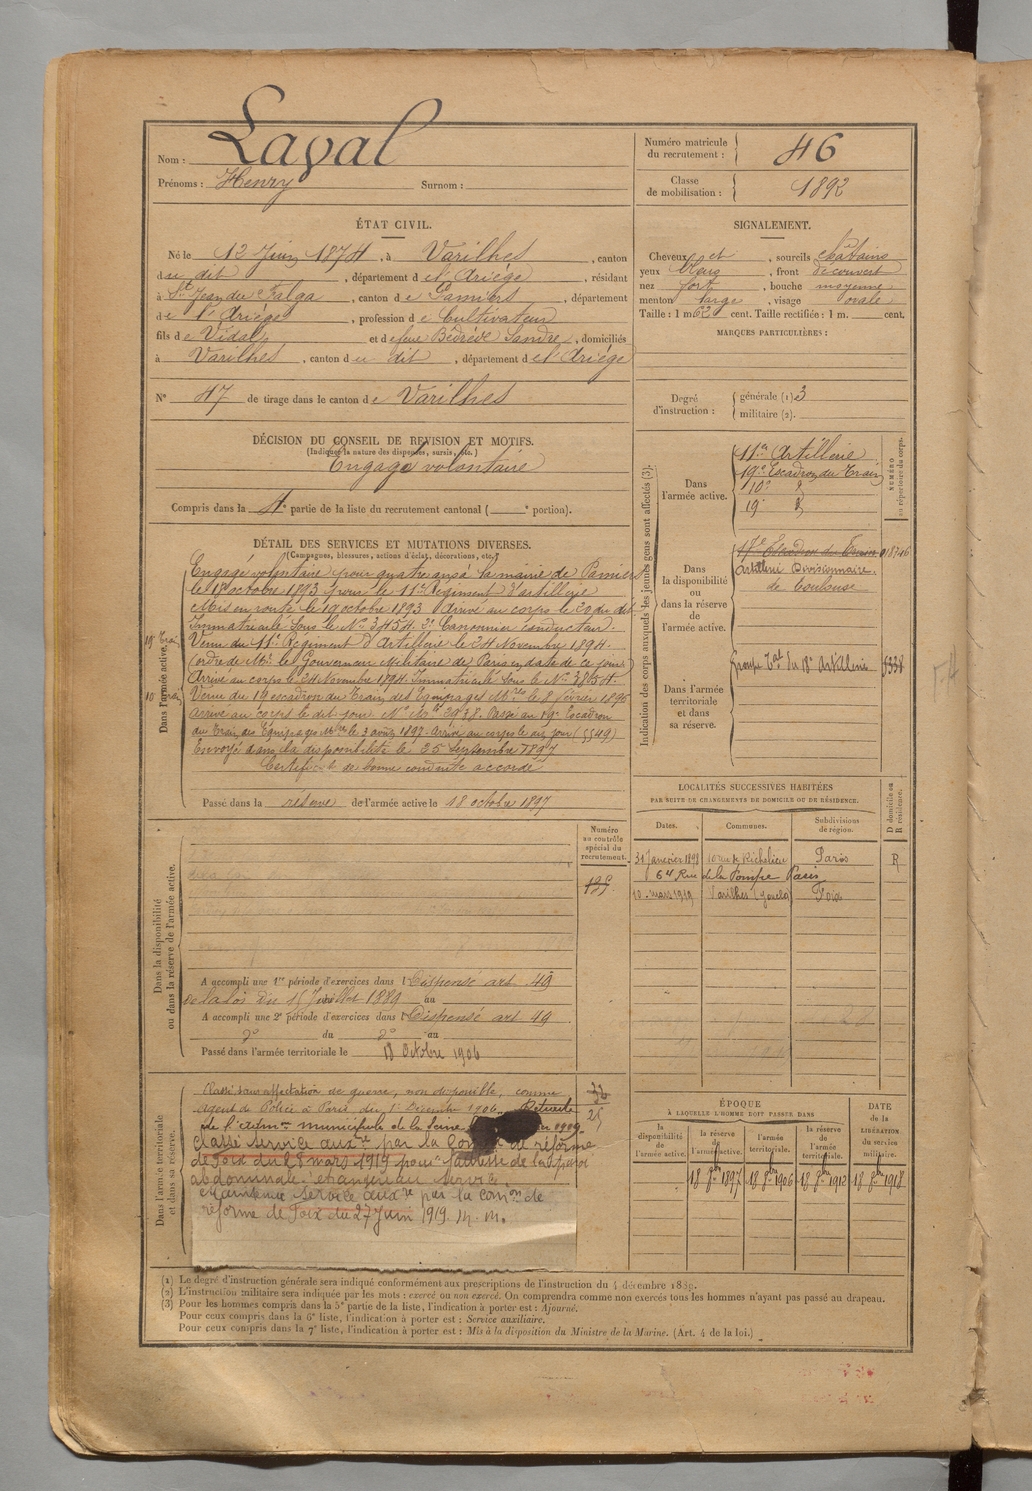 Nom : Laval
Prénoms : Henry Surnom :
Numéro matricule du recrutement : 46
Classe de mobilisation : 1892
ÉTAT CIVIL.
Né le 12 Juin 1874, à Varilhes, canton
du dit, département de l'Ariège, résidant
à St Jean du Falga, canton de Pamiers, département
de l'Ariège, profession de Cultivateur
fils de Vidal et de feue Bedrède Sandre, domiciliés
à Varilhes, canton du dit, département de l'Ariège
N° 47 de tirage dans le canton de Varilhes
SIGNALEMENT.
Cheveux et, sourcils châtains
yeux bleus, front découvert
nez fort, bouche moyenne
menton large, visage ovale
Taille : 1 m 62 cent. Taille rectifiée : 1 m. cent.
MARQUES PARTICULIÈRES :
Degré d'instruction : générale (1) 3
militaire (2).
DÉCISION DU CONSEIL DE REVISION ET MOTIFS.
(Indiquer la nature des dispenses, sursis, etc.)
Engagé volontaire
Compris dans la 4e partie de la liste du recrutement cantonal ( e portion).
DÉTAIL DES SERVICES ET MUTATIONS DIVERSES.
(Campagnes, blessures, actions d'éclat, décorations, etc.)
Dans l'armée active.
Engagé volontaire pour quatre ans à la mairie de Pamiers
le 18 octobre 1893 pour le 11e Régiment d'artillerie
Mis en route le 19 octobre 1893 Arrivé au corps le 20 du dit
Immatriculé sous le N° 3454. 2e Canonnier conducteur.
19e Train Venu du 11e Régiment d'Artillerie le 24 Novembre 1894.
(ordre de Mr le Gouverneur Militaire de Paris en date de ce jour)
Arrivé au corps le 24 Novembre 1894. Immatriculé sous le N° 3854.
10 Train Venu du 19 escadron du Train des Equipages Mres le 8 février 1896
arrivé au corps le dit jour N° Mle 2938. Passé au 19e Escadron
du Train des Equipages Mres le 3 août 1897. Arrivé au corps le dit jour (5549)
Envoyé dans la disponibilité le 25 Septembre 1897
Certificat de bonne conduite accordé
Passé dans la réserve de l'armée active le 18 octobre 1897
Indication des corps auxquels les jeunes gens sont affectés (3).
NUMÉRO au répertoire du corps.
Dans l'armée active.
11e Artillerie
19e Escadron du Train
10e d°
19e d°
Dans la disponibilité ou dans la réserve de l'armée active.
17e Escadron du Train 018746
Artillerie Divisionnaire.
de Toulouse
Dans l'armée territoriale et dans sa réserve.
Groupe Tal du 18e Artillerie
LOCALITÉS SUCCESSIVES HABITÉES
PAR SUITE DE CHANGEMENTS DE DOMICILE OU DE RÉSIDENCE.
Dates. Communes. Subdivisions de région. D domicile ou R résidence.
31 Janvier 1898 10 rue de Richelieu Paris R
64 Rue de la Pompe Paris
10 mars 1919 Varilhes Foix
Numéro au contrôle spécial du recrutement.
Dans la disponibilité ou dans la réserve de l'armée active.
A accompli une 1re période d'exercices dans l Dispensé art. 49
de la loi du 15 Juillet 1889 au
A accompli une 2e période d'exercices dans l Dispensé art 49
d° du d° au
Passé dans l'armée territoriale le 18 Octobre 1906
Dans l'armée territoriale et dans sa réserve.
Classé sans affectation de guerre, non disponible, comme
agent de Police à Paris du 1er Décembre 1906.
de l'admon municipale de la Seine 1909
Classé service auxre par la de réforme
de Foix du 28 mars 1919 pour faiblesse de la paroi
abdominale étranger au service.
Maintenu service auxre par la comon de
réforme de Foix du 27 Juin 1919. M. m.
25
ÉPOQUE
À LAQUELLE L'HOMME DOIT PASSER DANS
la disponibilité de l'armée active. la réserve de l'armée active. l'armée territoriale. la réserve de l'armée territoriale.
DATE de la LIBÉRATION du service militaire.
18 8bre 1897 18 8bre 1906 18 8bre 1912 18 8bre 1918
(1) Le degré d'instruction générale sera indiqué conformément aux prescriptions de l'instruction du 4 décembre 1889.
(2) L'instruction militaire sera indiquée par les mots : exercé ou non exercé. On comprendra comme non exercés tous les hommes n'ayant pas passé au drapeau.
(3) Pour les hommes compris dans la 5e partie de la liste, l'indication à porter est : Ajourné.
Pour ceux compris dans la 6e liste, l'indication à porter est : Service auxiliaire.
Pour ceux compris dans la 7e liste, l'indication à porter est : Mis à la disposition du Ministre de la Marine. (Art. 4 de la loi.)